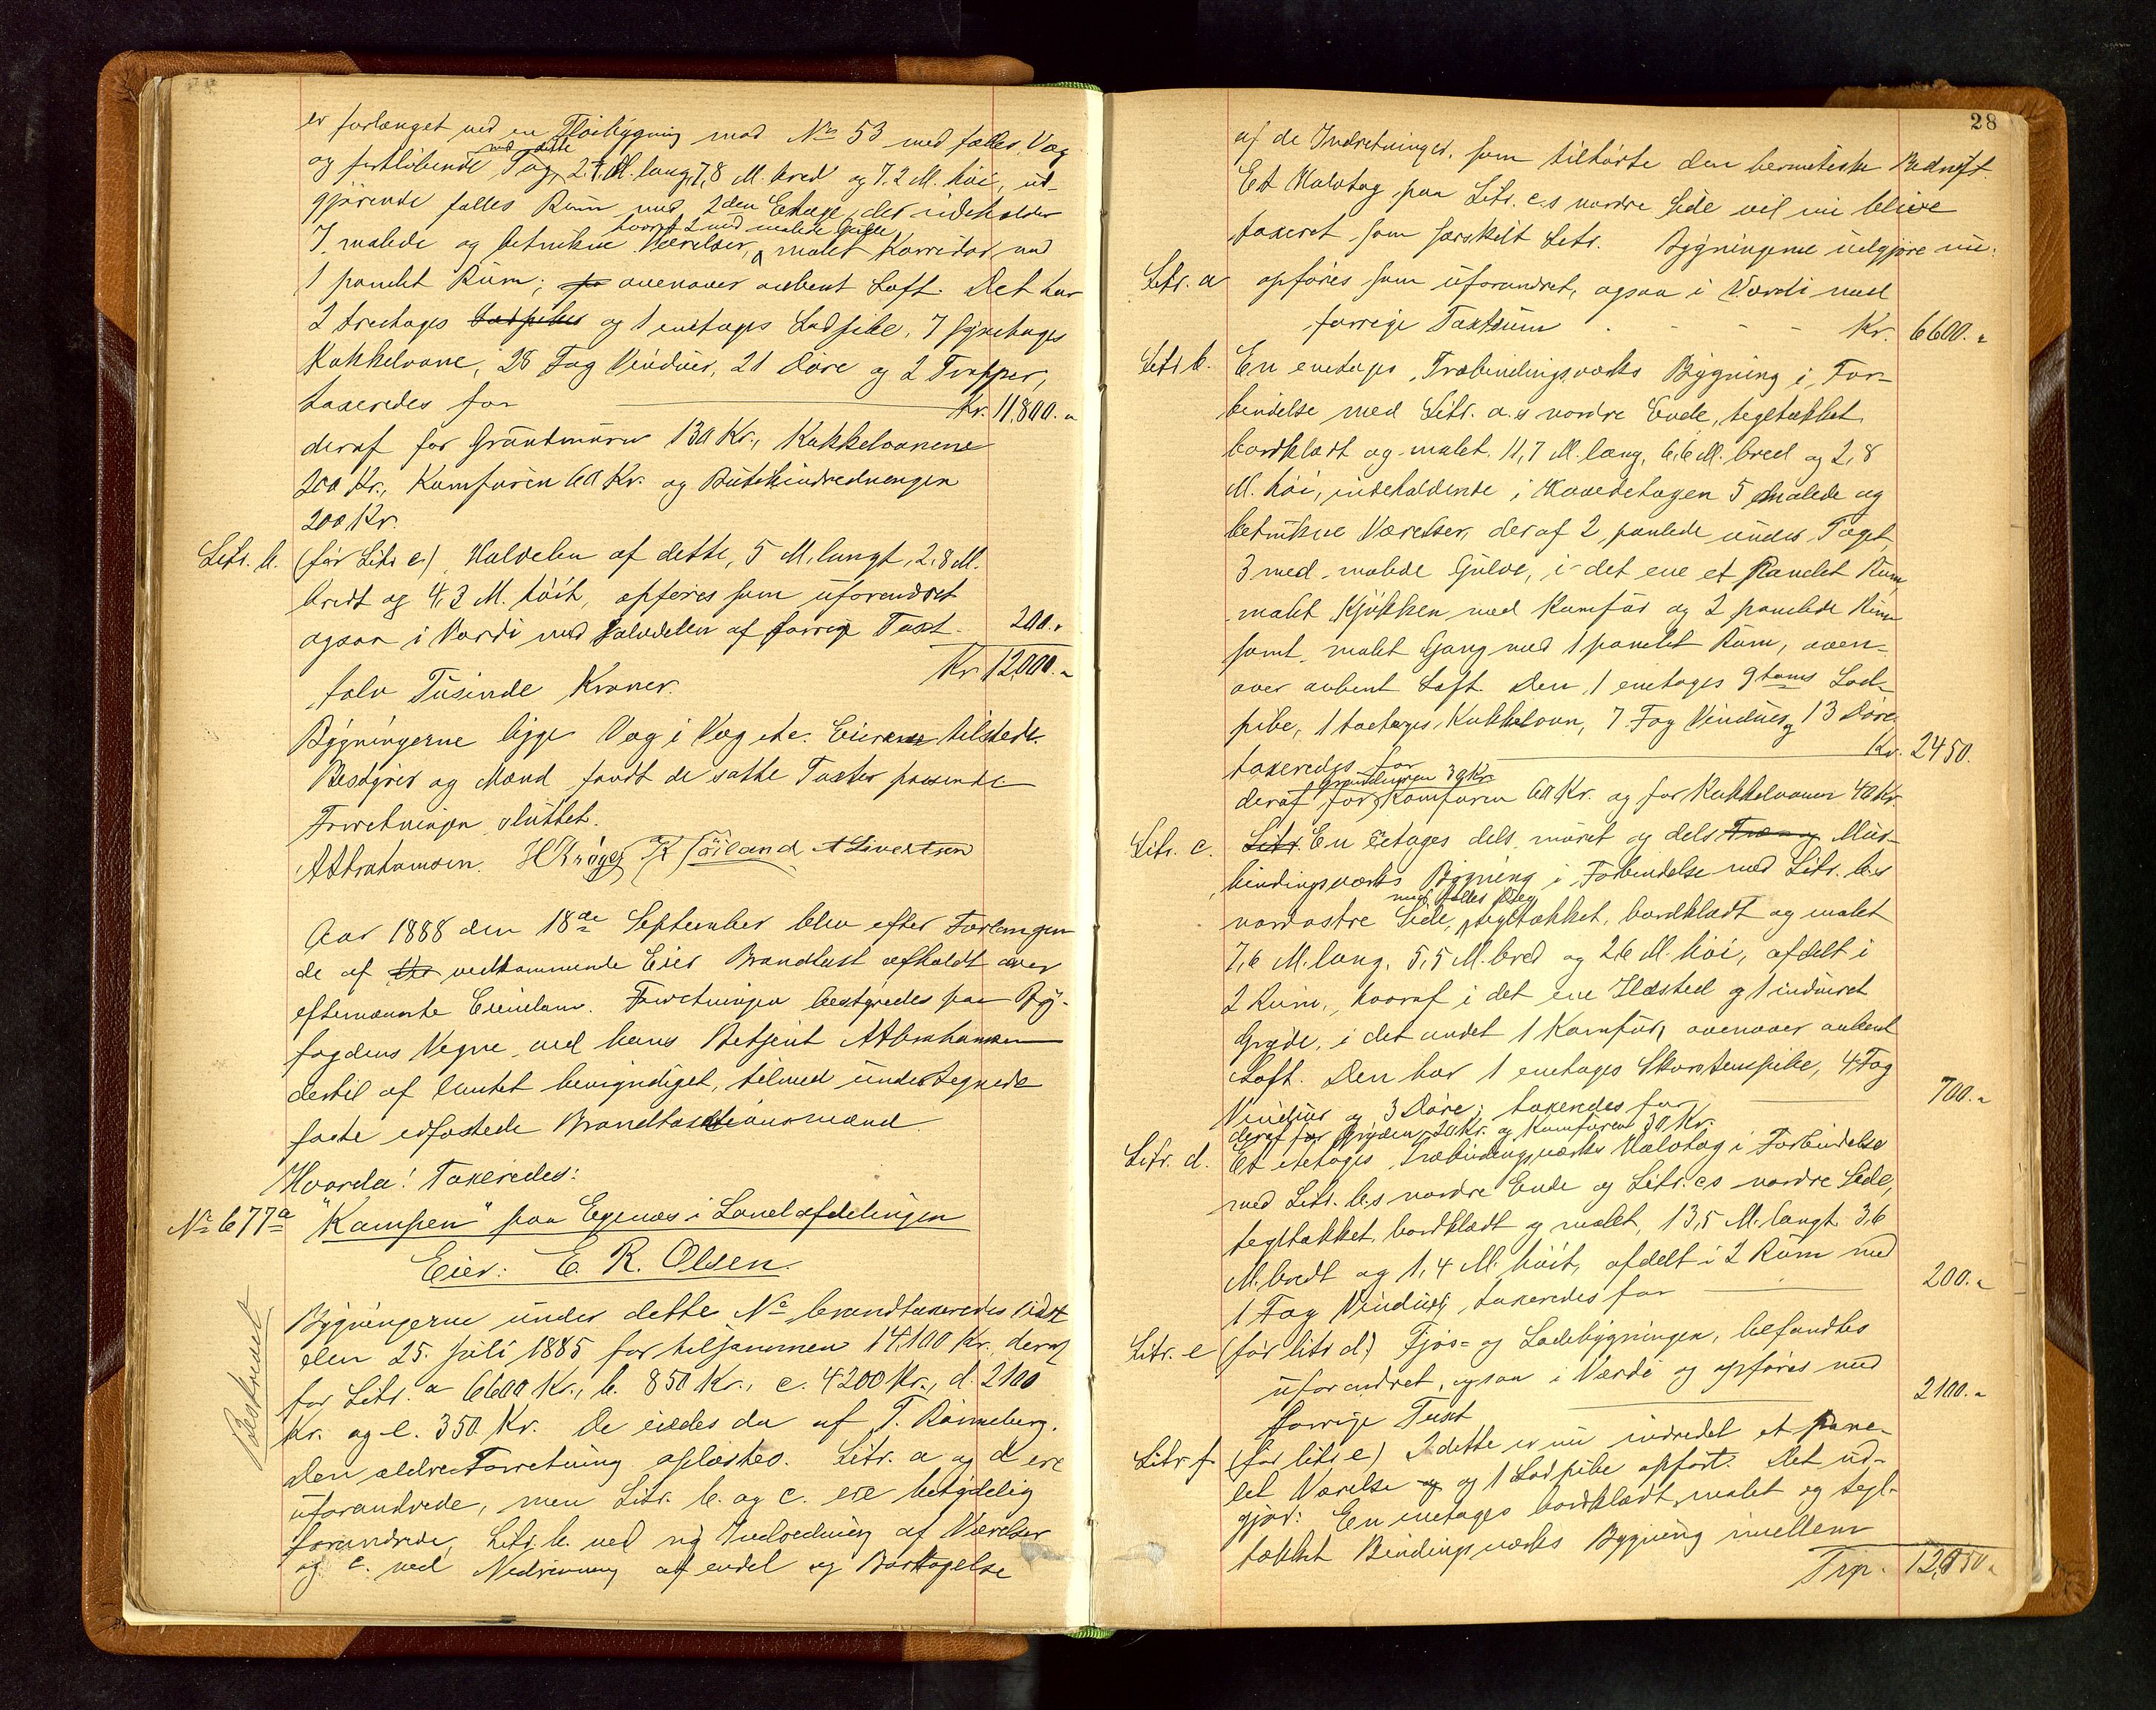 er forlænget ved en Fløibygning mod No 53 med fælles Væg
og fortløbende Tag, 2,7 M. lang, 7,8 M. bred og 7,2 M. høi, ud-
gjørende fælles Rum med 2den Etage, der indeholder
hvoraf 2 med malede Gulve
7 malede og betrukne Værelser, malet Korridor med
1 panelet Rum; ovenover aabent Loft. Det har
2 treetages Lodpiber og 1 enetages Lodpibe, 7 Kakkelovne, 28 Fag Vinduer, 21 Døre og 2 Trapper,
taxeredes for Kr. 11,800.
deraf for Grundmuren 130 Kr., Kakkelovnene
200 Kr., Komfuren 60 Kr. og Butikindredningen
200 Kr.
Litr. b. (før Litr c). Halvdelen af dette, 5 M. langt, 2,8 M.
bredt og 4,3 M. høit, opføres som uforandret
ogsaa i Værdi med halvdelen af forrige Taxt. 200.
Kr. 12000.
tolv Tusinde Kroner.
Bygningerne ligge Væg i Væg etc. Eieren tilstede.
Bestyrer og Mænd fandt de satte Taxter passende
Forretningen sluttet.
A Abrahamsen. H Krøger K Høiland A Sivertsen
Aar 1888 den 18de September blev efter Forlangen
de af vedkommende Eier Brandtaxt afholdt over
efternævnte Eiendom. Forretningen bestyredes paa By-
fogdens Vegne ved hans Betjent A Abrahamsen
dertil af Amtet bemyndiget, tilmed undertegnede
faste edfæstede Brandtaxtationsmænd
Hvorda! Taxeredes:
No 677a "Kampen" paa Egenæs i Landafdelingen
Eier: E. R. Olsen.
Beskrevet
Bygningerne under dette No brandtaxeredes sidst
den 25. juli 1885 for tilsammen 14,100 Kr., deraf
for Litr. a 6600 Kr., b. 850 Kr., c. 4200 Kr., d. 2100
Kr. og e. 350 Kr. De eiedes da af T. Rönneberg.
Den ældre Forretning oplæstes. Litr. a og d ere
uforandrede, men Litr. b. og c. ere betydelig
forandrede, Litr. b. ved ny Indredning af Værelser
og c. ved Nedrivning af endel og Borttagelse
28
af de Indretninger, som tilhørte den hermetiske Bedrift.
Et Halvtag paa Litr. c.s nordre Side vil nu blive
taxeret som særskilt Litr. Bygningerne udgjøre nu:
Litr. a opføres som uforandret, ogsaa i Værdi med
forrige Taxtsum Kr. 6600.
Litr. b. En enetages Træbindingsværks Bygning i For-
bindelse med Litr. a.s nordre Ende, tegltækket,
bordklædt og malet. 11,7 M. lang, 6,6 M. bred og 2,8
M. høi, indeholdende i Hovedetagen 5 malede og
betrukne Værelser, deraf 2 panlede under Taget,
3 med malede Gulve, i det ene et Panelet Rum,
malet Kjøkken med Komfur og 2 panelede Rum
samt malet Gang med 1 panelet Rum, oven-
over aabent Loft. Den 1 enetages 9toms Lod-
pibe, 1 toetages Kakkelovn, 7 Fag Vinduer og 13 Døre
taxeredes for Kr. 2450.
Grundmuren 30 Kr.
deraf for Komfuren 60 Kr. og for Kakkelovnen 40 Kr.
Litr. c. Litr. En etages dels muret og dels Træ og Mur-
bindingsværks Bygning i Forbindelse med Litr. b.s
med fælles Væg
nordostre Side, tegltækket, bordklædt og malet
7,6 M. lang, 5,5 M. bred og 2,6 M. høi, afdelt i
2 Rum, hvoraf i det ene Ildsted og 1 indmuret
Gryde, i det andet 1 Komfur, ovenover aabent
Loft. Den har 1 enetages Skorstenspibe, 4 Fag
Vinduer og 3 Døre; taxeredes for 700.
deraf for Gryden 20 Kr. og Komfuren 30 Kr.
Litr. d. Et etetages Træbindingsværks Halvtag i Forbindelse
med Litr. b.s nordre Ende og Litr. c.s nordre Side,
tegltækket, bordklædt og malet, 13,5 M. langt 3,6
M. bredt og 1,4 M. høit, afdelt i 2 Rum med
1 Fag Vinduer, taxeredes for 200.
Litr. e (før litr d.) Fjøs- og Ladebygningen, befandtes
uforandret, ogsaa i Værdi og opføres med
forrige Taxt 2100.
Litr. f. (før litr. e) I dette er nu indredet et pane-
let Værelse og 1 Lodpibe opført. Det ud-
gjør: En enetages bordklædt, malet og tegl-
tækket Bindingsværks Bygning imellem
Trp. 12,050.